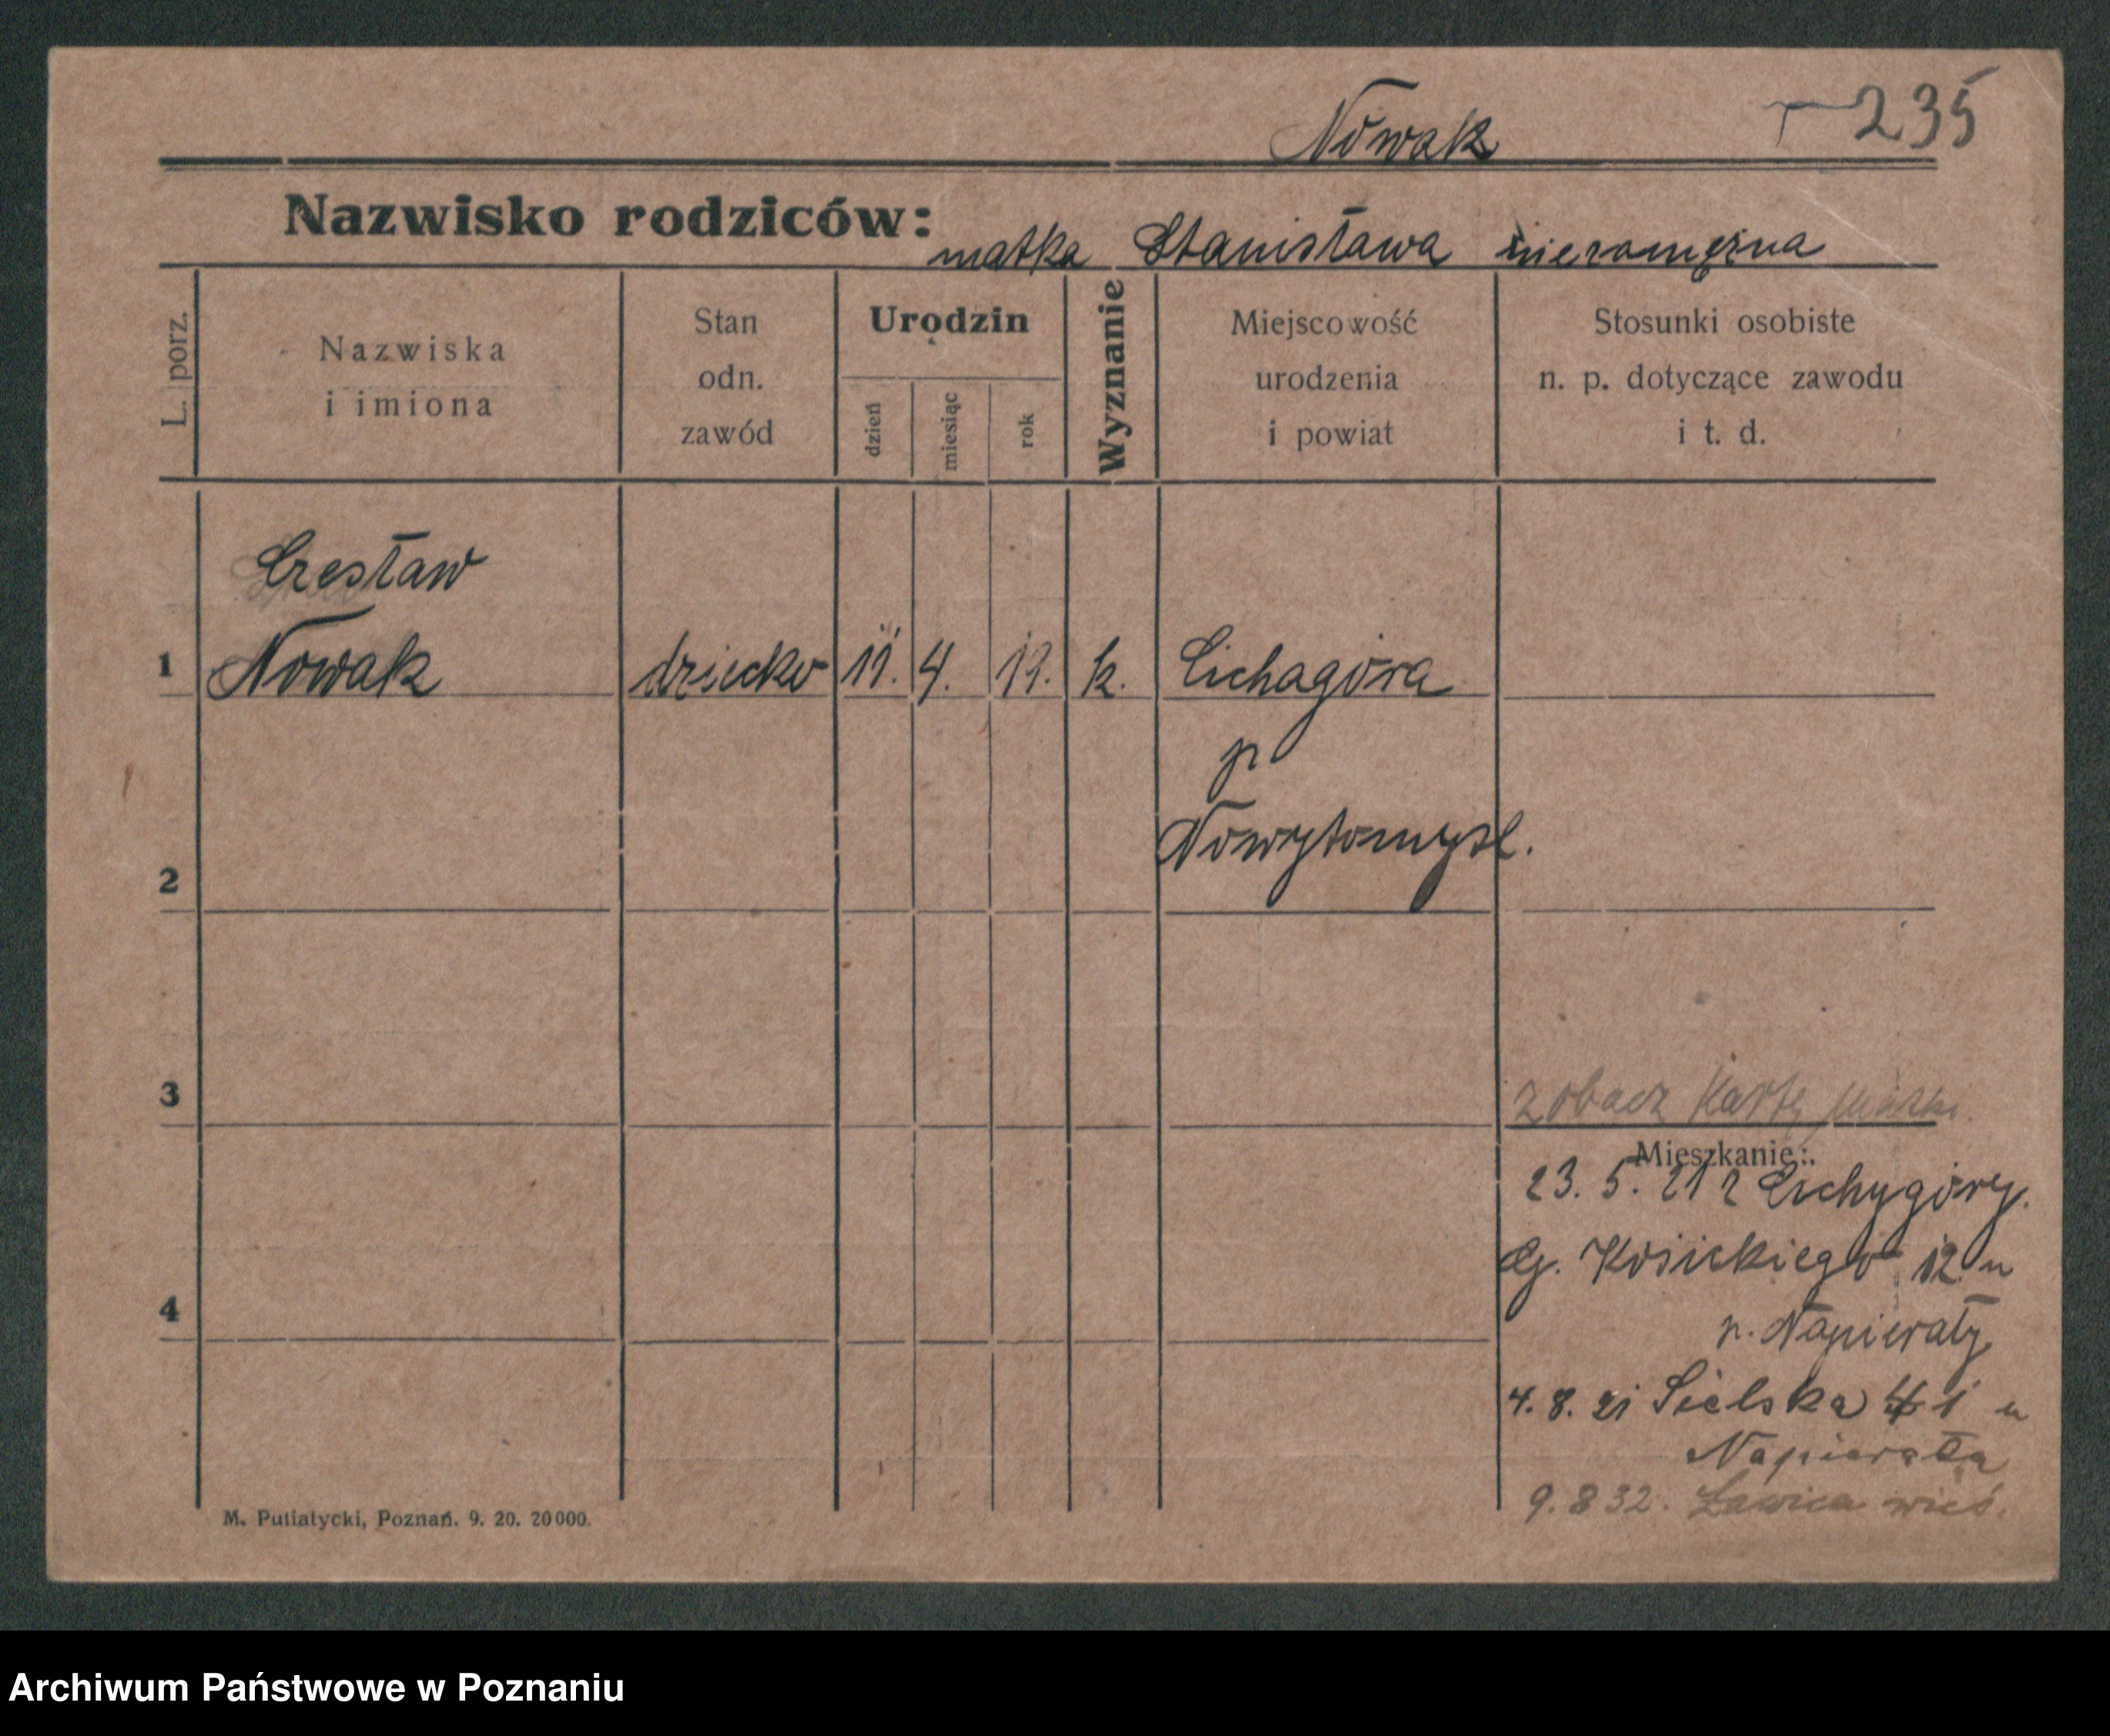 Nowak 235
Nazwisko rodziców:
matka Stanisława niezamężna
L. porz.
Nazwiska
i imiona
Stan
odn.
zawód
Urodzin
dzień
miesiąc
rok
Wyznanie
Miejscowość
urodzenia
i powiat
Stosunki osobiste
n. p. dotyczące zawodu
i t. d.
Czesław
1 Nowak dziecko 11. 4. 19. k. Cichagóra
p
Nowytomysl.
2
3
zobacz Kartę matki
Mieszkanie:
23. 5. 21 z Cichygóry.
Kosickiego 12 u
p. Napierały
4
4. 8. 21 Sielska 41 u
Napierała
9. 8 32. Ławica wieś.
M. Putiatycki, Poznań. 9. 20. 20000.
Archiwum Państwowe w Poznaniu